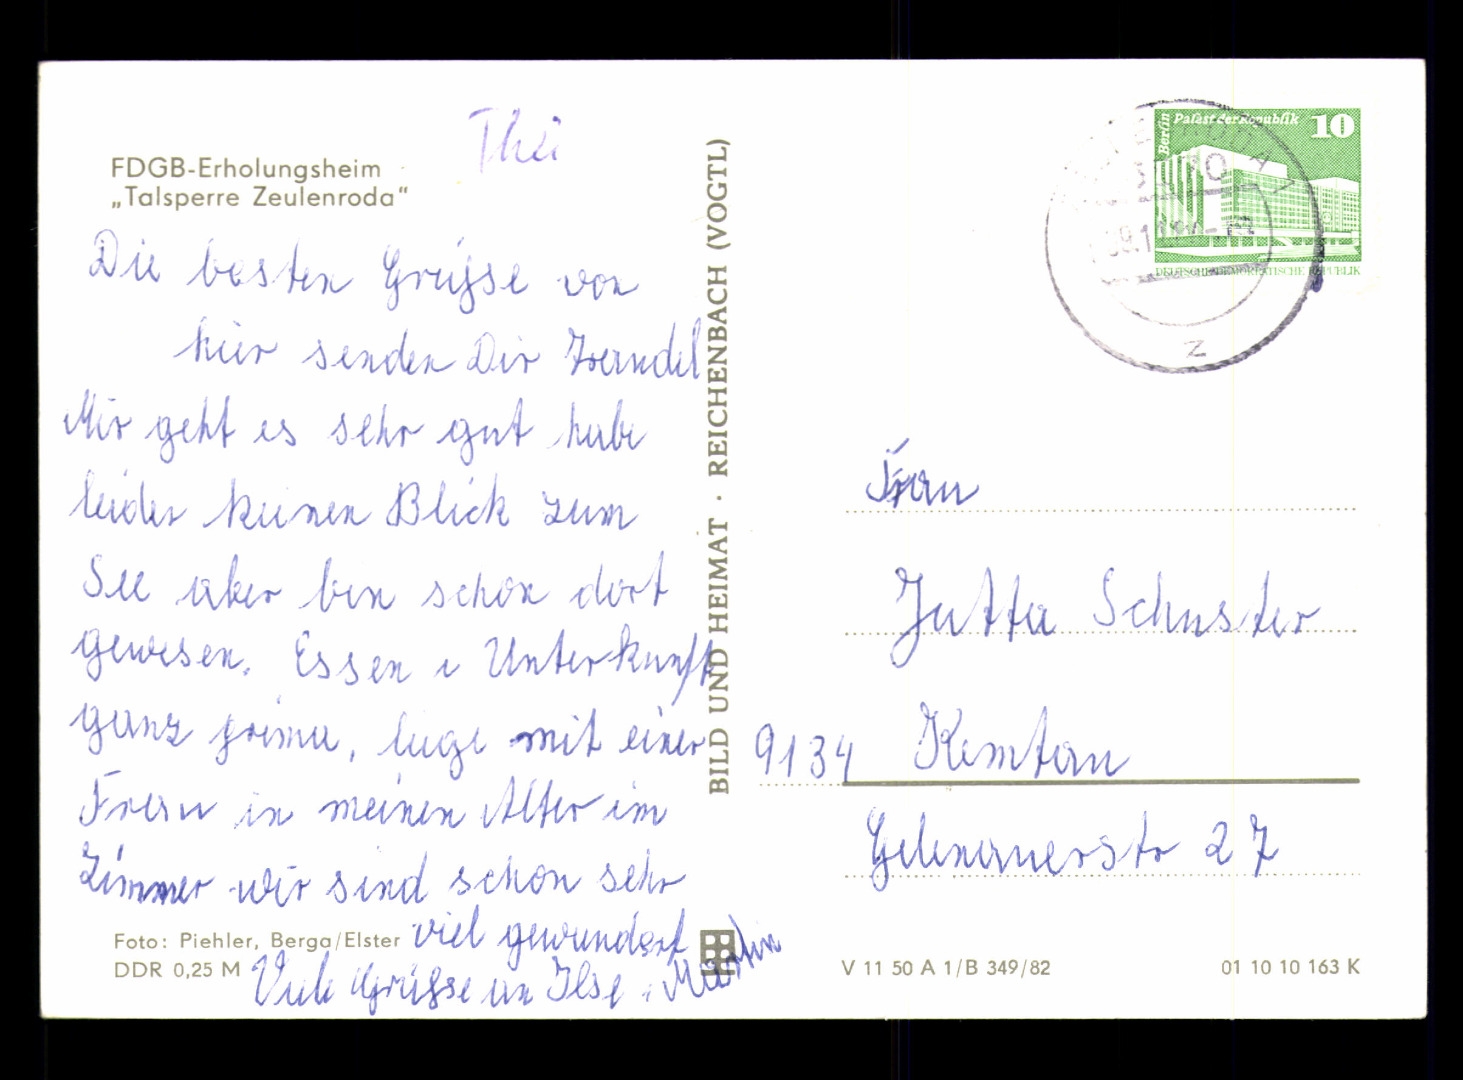 Thü
FDGB-Erholungsheim
„Talsperre Zeulenroda“
Die besten Grüsse von
hier senden Dir
Mir geht es sehr gut habe
leider keinen Blick zum
See aber bin schon dort
gewesen. Essen u Unterkunft
ganz prima, liege mit einer
Frau in meinen Alter im
Zimmer wir sind schon sehr
viel gewandert
Viele Grüsse an Ilse u Martin
Foto: Piehler, Berga/Elster
DDR 0,25 M
BILD UND HEIMAT · REICHENBACH (VOGTL)
Berlin Palast der Republik 10
DEUTSCHE DEMOKRATISCHE REPUBLIK
z
Frau
Jutta Schuster
9134 Kemtau
Gelenauerstr 27
V 11 50 A 1/B 349/82
01 10 10 163 K